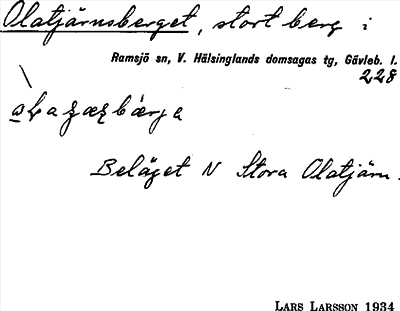 Olatjärnsberget, stort berg i
Ramsjö sn, V. Hälsinglands domsagas tg, Gävleb. l.
228
Beläget N Stora Olatjärn.
LARS LARSSON 1934